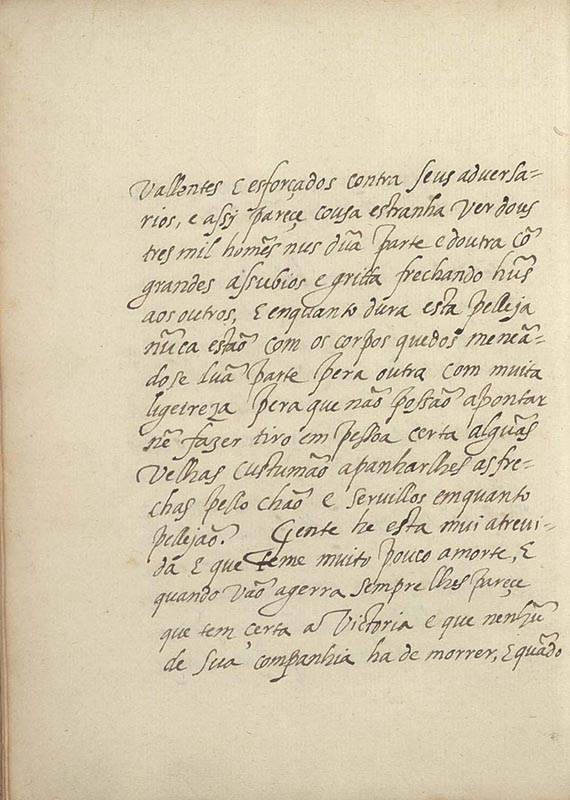 Vallentes E esforçados contra seus adversa=
rios, e assy pareçe cousa estranha ver dous
tres mil homẽs nus dũa parte e doutra cõ
grandes assubios e gritta frechando hũs
aos outros, E enquanto dura esta pelleja
nũca estão com os corpos quedos meneã=
dose dũa parte pera outra com muita
ligeireza pera que não possão apontar
nẽ fazer tiro em pessoa certa algũas
velhas custumão apanharlhes as fre=
chas pello chão e servillos emquanto
pellejão. Gente he esta mui atrevi=
da E que teme muito pouco a morte, E
quando vão a gerra sempre lhes pareçe
que tem certa a Victoria e que nenhũ
de sua companhia ha de morrer, E quãdo